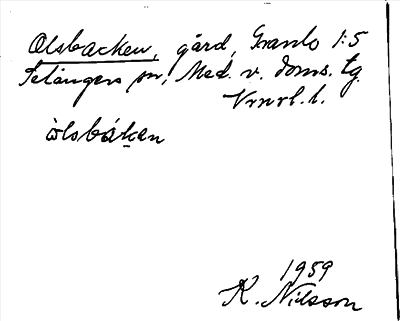 Olsbacken, gård, Granlo 1:5
Selångers sn, Med. v. doms. tg.
Vrnrl. l.
òlsbáken
1959
K. Nilsson